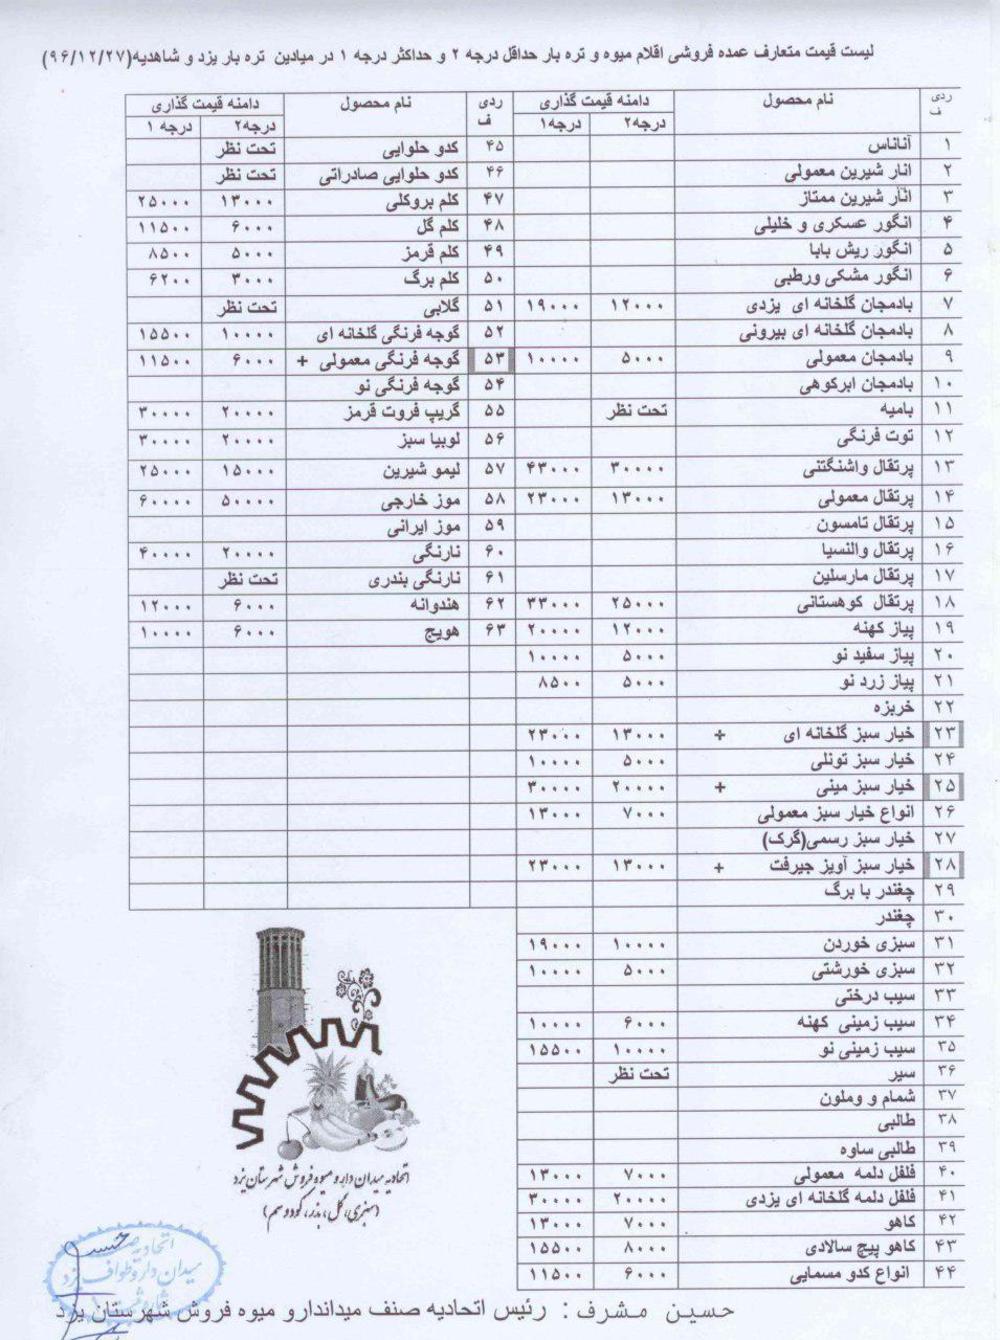 لیست قیمت متعارف عمده فروشی اقلام میوه و تره بار حداقل درجه ۲ و حداکثر درجه ۱ در میادین تره بار یزد و شاهدیه(۹۶/۱۲/۲۷)
ردیف نام محصول دامنه قیمت گذاری
درجه۲ درجه۱
۱ آناناس
۲ انار شیرین معمولی
۳ انار شیرین ممتاز
۴ انگور عسکری و خلیلی
۵ انگور ریش بابا
۶ انگور مشکی ورطبی
۷ بادمجان گلخانه ای یزدی ۱۲۰۰۰ ۱۹۰۰۰
۸ بادمجان گلخانه ای بیرونی
۹ بادمجان معمولی ۵۰۰۰ ۱۰۰۰۰
۱۰ بادمجان ابرکوهی
۱۱ بامیه تحت نظر
۱۲ توت فرنگی
۱۳ پرتقال واشنگتنی ۳۰۰۰۰ ۴۳۰۰۰
۱۴ پرتقال معمولی ۱۳۰۰۰ ۲۳۰۰۰
۱۵ پرتقال تامسون
۱۶ پرتقال والنسیا
۱۷ پرتقال مارسلین
۱۸ پرتقال کوهستانی ۲۵۰۰۰ ۳۳۰۰۰
۱۹ پیاز کهنه ۱۲۰۰۰ ۲۰۰۰۰
۲۰ پیاز سفید نو ۵۰۰۰ ۱۰۰۰۰
۲۱ پیاز زرد نو ۵۰۰۰ ۸۵۰۰
۲۲ خربزه
۲۳ خیار سبز گلخانه ای + ۱۳۰۰۰ ۲۳۰۰۰
۲۴ خیار سبز تونلی ۵۰۰۰ ۱۰۰۰۰
۲۵ خیار سبز مینی + ۲۰۰۰۰ ۳۰۰۰۰
۲۶ انواع خیار سبز معمولی ۷۰۰۰ ۱۳۰۰۰
۲۷ خیار سبز رسمی(گرک)
۲۸ خیار سبز آویز جیرفت + ۱۳۰۰۰ ۲۳۰۰۰
۲۹ چغندر با برگ
۳۰ چغندر
۳۱ سبزی خوردن ۱۰۰۰۰ ۱۹۰۰۰
۳۲ سبزی خورشتی ۵۰۰۰ ۱۰۰۰۰
۳۳ سیب درختی
۳۴ سیب زمینی کهنه ۶۰۰۰ ۱۰۰۰۰
۳۵ سیب زمینی نو ۱۰۰۰۰ ۱۵۵۰۰
۳۶ سیر تحت نظر
۳۷ شمام و وملون
۳۸ طالبی
۳۹ طالبی ساوه
۴۰ فلفل دلمه معمولی ۷۰۰۰ ۱۳۰۰۰
۴۱ فلفل دلمه گلخانه ای یزدی ۲۰۰۰۰ ۳۰۰۰۰
۴۲ کاهو ۷۰۰۰ ۱۳۰۰۰
۴۳ کاهو پیچ سالادی ۸۰۰۰ ۱۵۵۰۰
۴۴ انواع کدو مسمایی ۶۰۰۰ ۱۱۵۰۰
ردیف نام محصول دامنه قیمت گذاری
درجه۲ درجه ۱
۴۵ کدو حلوایی تحت نظر
۴۶ کدو حلوایی صادراتی تحت نظر
۴۷ کلم بروکلی ۱۳۰۰۰ ۲۵۰۰۰
۴۸ کلم گل ۶۰۰۰ ۱۱۵۰۰
۴۹ کلم قرمز ۵۰۰۰ ۸۵۰۰
۵۰ کلم برگ ۳۰۰۰ ۶۲۰۰
۵۱ گلابی تحت نظر
۵۲ گوجه فرنگی گلخانه ای ۱۰۰۰۰ ۱۵۵۰۰
۵۳ گوجه فرنگی معمولی + ۶۰۰۰ ۱۱۵۰۰
۵۴ گوجه فرنگی نو
۵۵ گریپ فروت قرمز ۲۰۰۰۰ ۳۰۰۰۰
۵۶ لوبیا سبز ۲۰۰۰۰ ۳۰۰۰۰
۵۷ لیمو شیرین ۱۵۰۰۰ ۲۵۰۰۰
۵۸ موز خارجی ۵۰۰۰۰ ۶۰۰۰۰
۵۹ موز ایرانی
۶۰ نارنگی ۲۰۰۰۰ ۴۰۰۰۰
۶۱ نارنگی بندری تحت نظر
۶۲ هندوانه ۶۰۰۰ ۱۲۰۰۰
۶۳ هویج ۶۰۰۰ ۱۰۰۰۰
اتحادیه میدان دار و میوه فروش شهرستان یزد
(سبزی، گل، بذر، کود و سم)
اتحادیه صنف
میدان دار و طواف یزد
حسین مشرف : رئیس اتحادیه صنف میداندارو میوه فروش شهرستان یزد